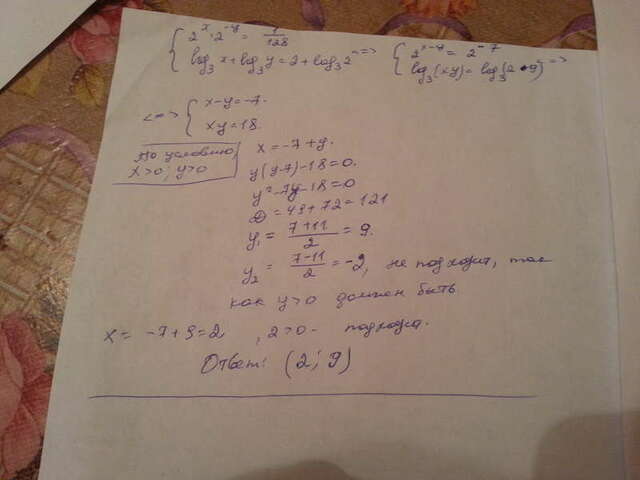 { 2^x · 2^-y = 1/128
log₃x + log₃y = 2 + log₃2 <=> { 2^x-y = 2^-7
log₃(xy) = log₃(2·9) <=>
<=> { x-y=-7.
xy=18.
По условию,
x>0, y>0
x=-7+y.
y(y-7)-18=0.
y²-7y-18=0
D=49+72=121
y₁ = (7+11)/2 = 9.
y₂ = (7-11)/2 = -2, не подходит, так
как y>0 должен быть.
x = -7+9=2, 2>0 - подходит.
Ответ: (2; 9)